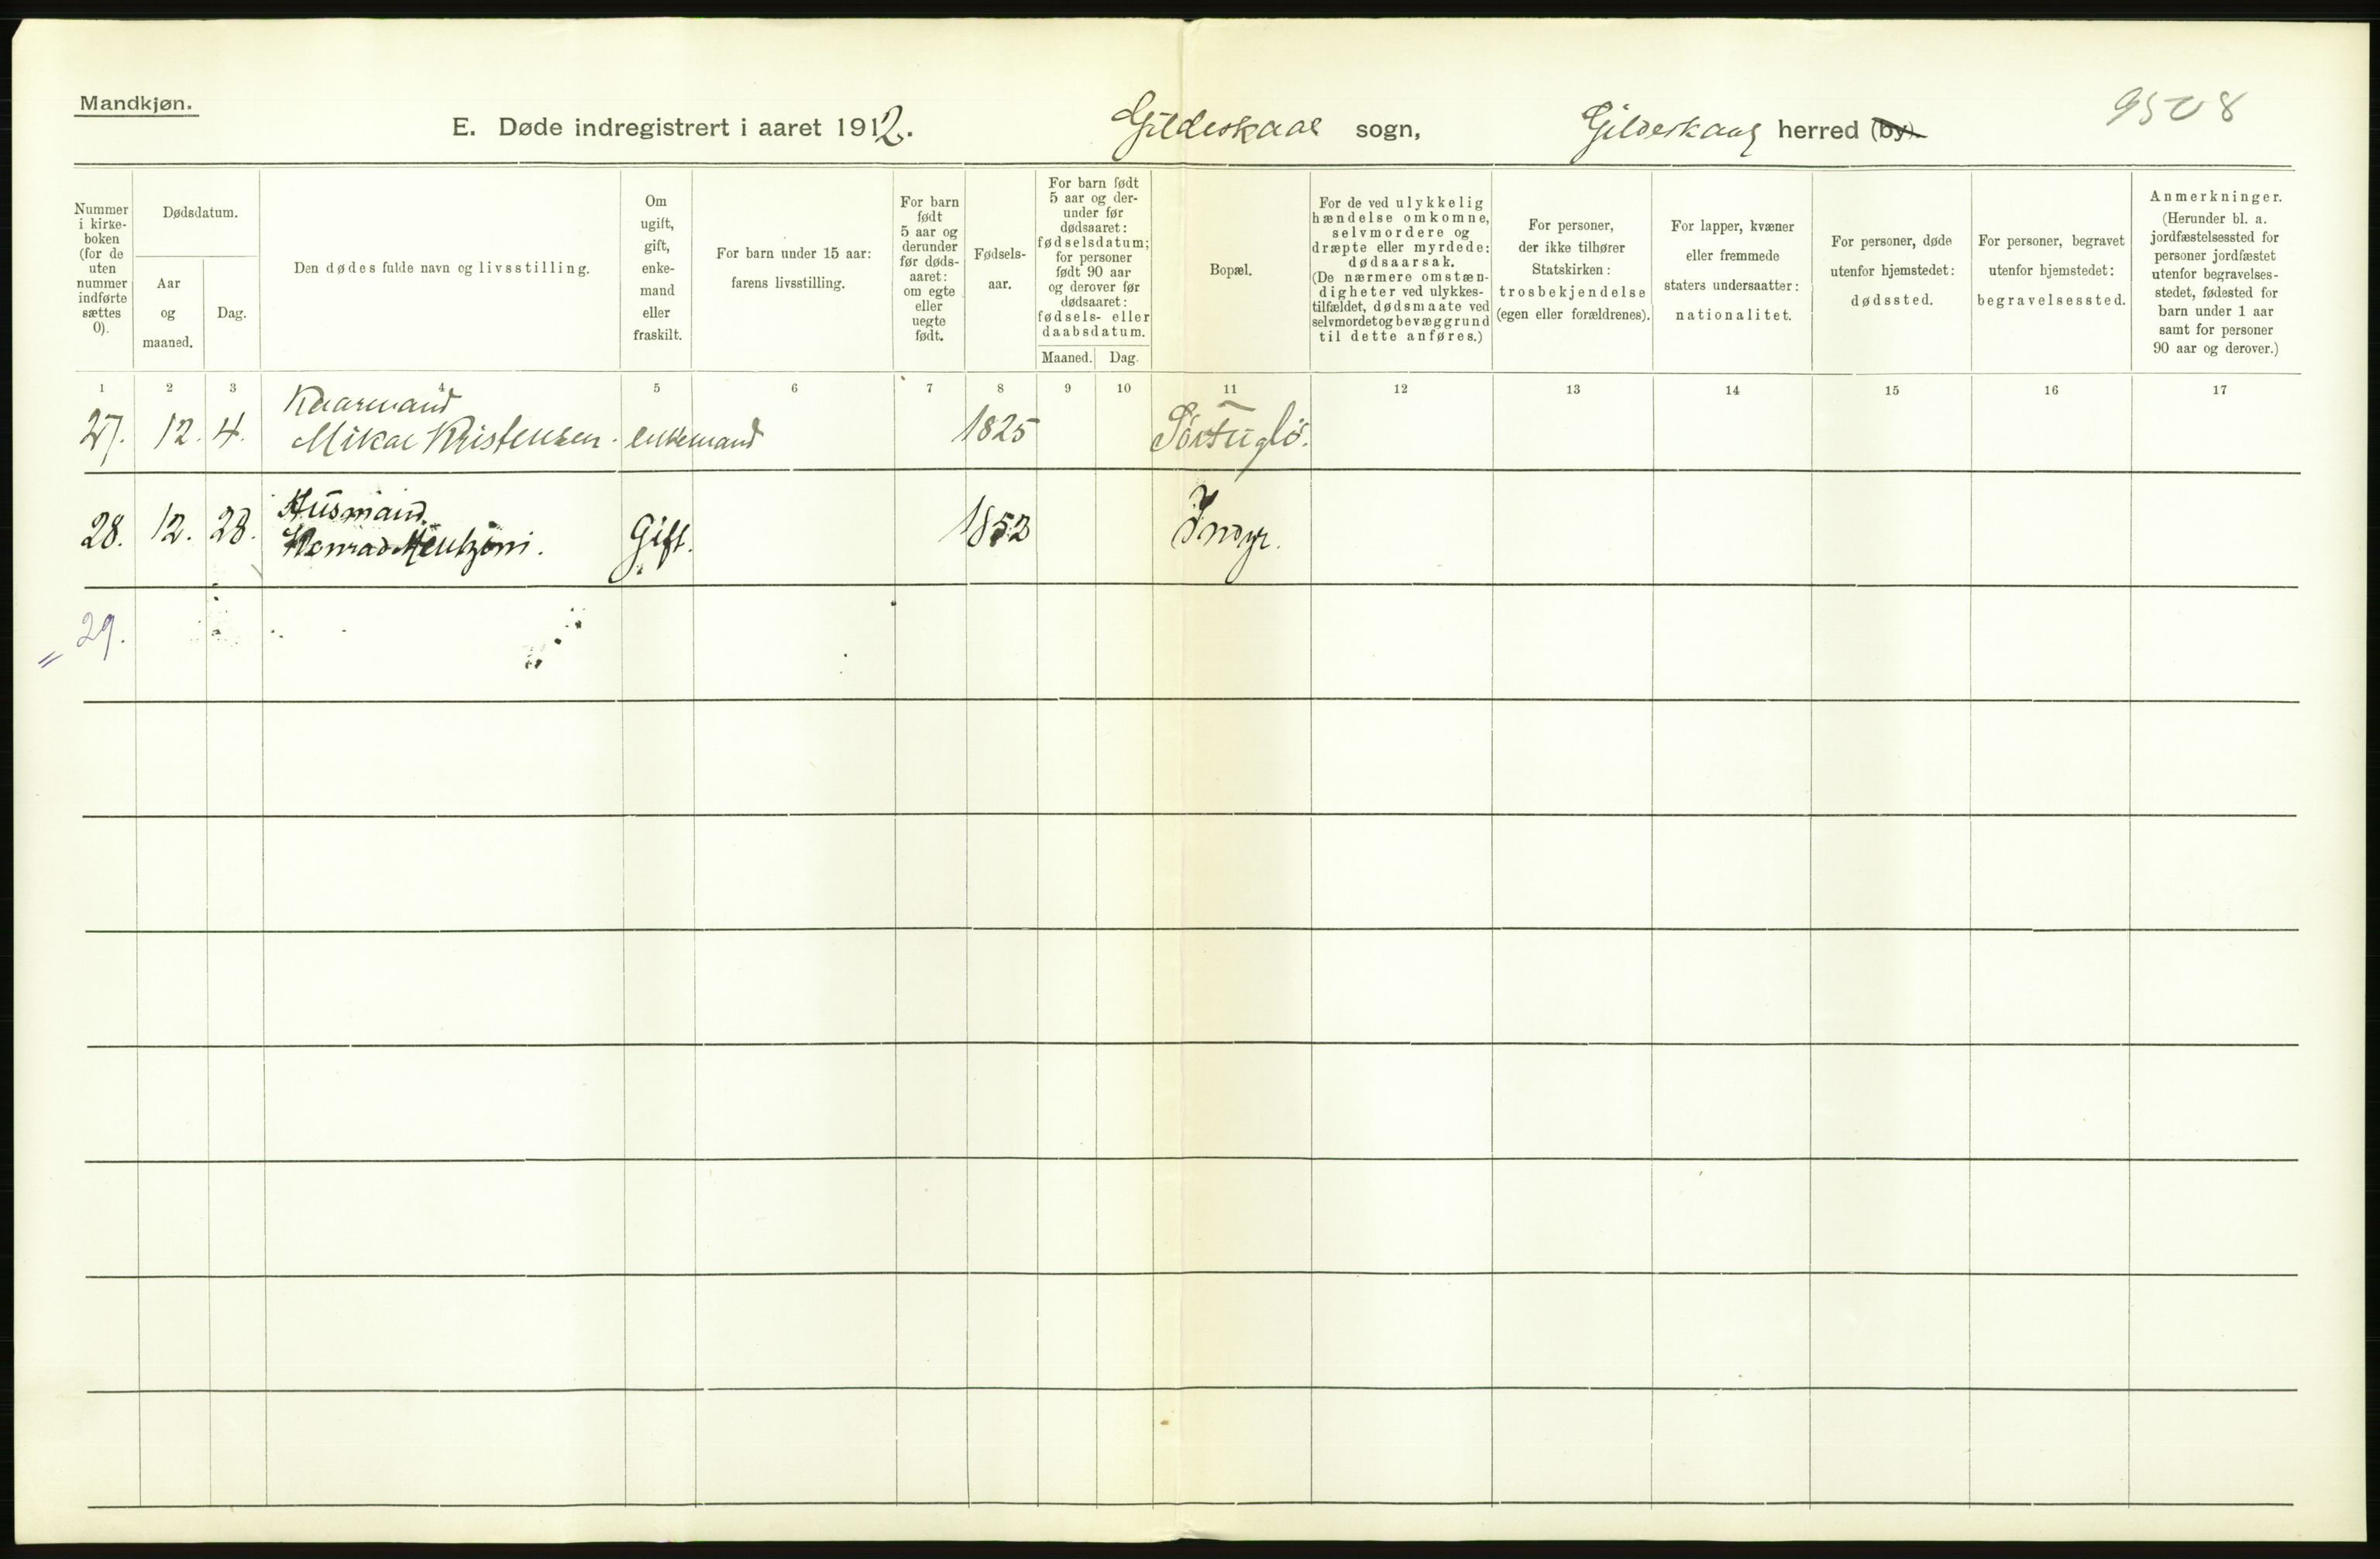 Mandkjøn.
E. Døde indregistrert i aaret 1912. Gildeskaal sogn, Gildeskaal herred (by).
Nummer i kirke- boken (for de uten nummer indførte sættes 0).
Dødsdatum.
Aar og maaned.
Dag.
Den dødes fulde navn og livsstilling.
Om ugift, gift, enke- mand eller fraskilt.
For barn under 15 aar: farens livsstilling.
For barn født 5 aar og derunder før døds- aaret: om egte eller uegte født.
Fødsels- aar.
For barn født 5 aar og der- under før dødsaaret: fødselsdatum; for personer født 90 aar og derover før dødsaaret: fødsels- eller daabsdatum.
Maaned. Dag.
Bopæl.
For de ved ulykkelig hændelse omkomne, selvmordere og dræpte eller myrdede: dødsaarsak. (De nærmere omstæn- digheter ved ulykkes- tilfældet, dødsmaate ved selvmordet og bevæggrund til dette anføres.)
For personer, der ikke tilhører Statskirken: trosbekjendelse (egen eller forældrenes).
For lapper, kvæner eller fremmede staters undersaatter: nationalitet.
For personer, døde utenfor hjemstedet: dødssted.
For personer, begravet utenfor hjemstedet: begravelsessted.
Anmerkninger. (Herunder bl. a. jordfæstelsessted for personer jordfæstet utenfor begravelses- stedet, fødested for barn under 1 aar samt for personer 90 aar og derover.)
1 2 3 4 5 6 7 8 9 10 11 12 13 14 15 16 17
Kaarmand
27. 12. 4. Mikal Kristensen. enkemand 1825 Sørfuglö.
Husmand
28. 12. 28. Konrad Mentzoni. Gift. 1852 Indyr.
= 29.